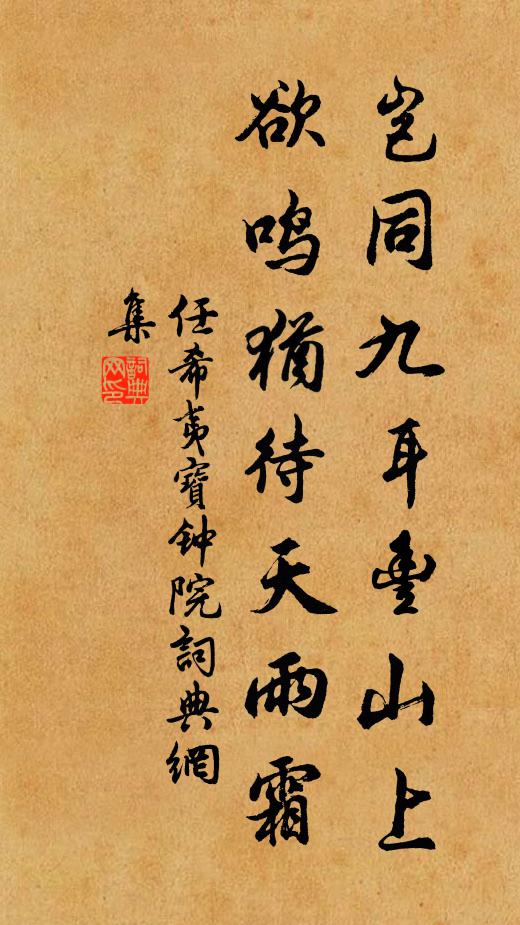 岂同九耳豐山上
欲鸣猶待天雨霜
任希夷寶钟院詞典網
集
詞典网印